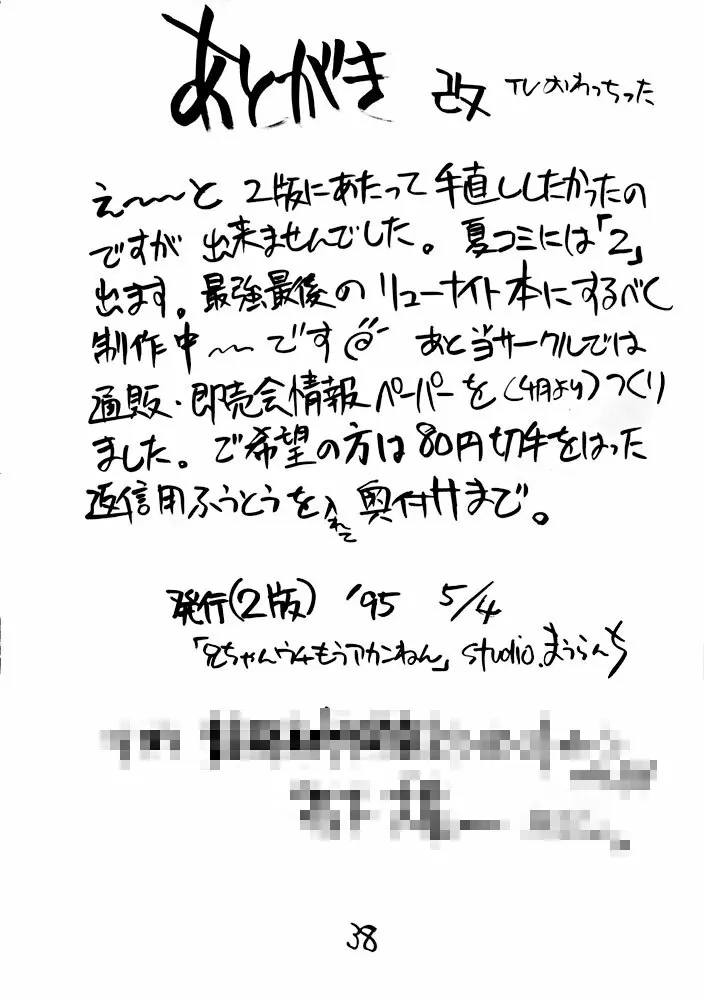 あとがき 改 TVおわっちった
え〜〜と 2版にあたって手直ししたかったの
ですが 出来ませんでした。夏コミには「2」
出ます。最強最後のリューナイト本にするべく
制作中〜〜です
あと当サークルでは
通販・即売会情報ペーパーを(4月より)つくり
ました。ご希望の方は80円切手をはった
返信用ふうとうを入れて奥付けまで。
発行(2版) '95 5/4
「兄ちゃんウチもうアカンねん」studio.まうらんち
38